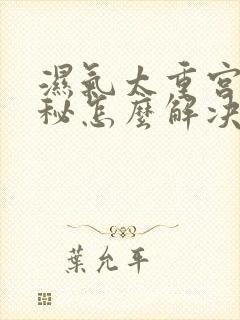 濕氣太重宮
秘怎麼解決
葉允平